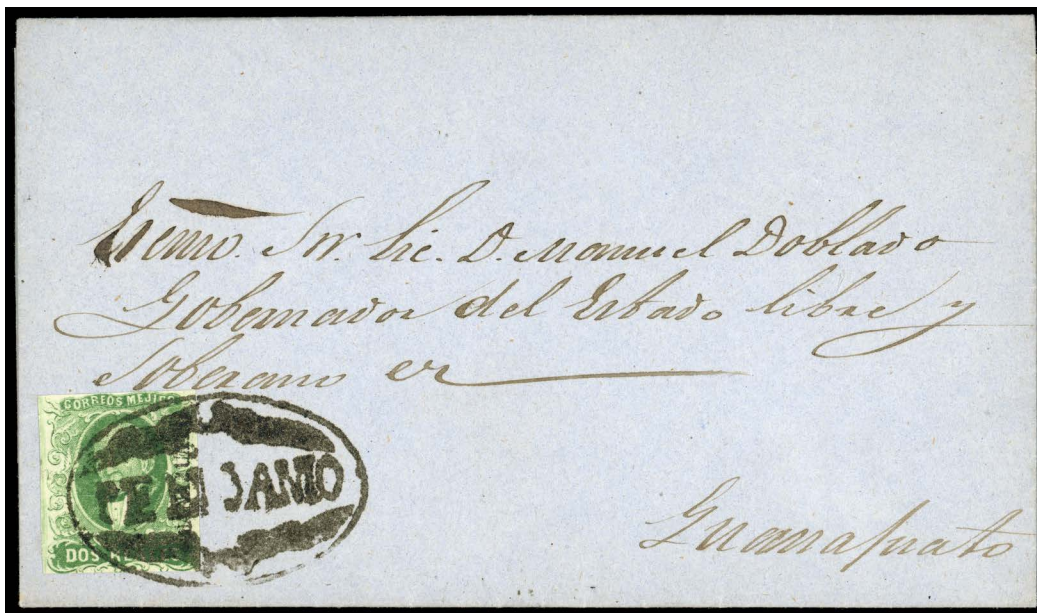 Exmo. Sor. Lic. D. Manuel Doblado
Gobernador del Estado libre y
Soberano er
CORREOS MEJICO
PENJAMO
DOS REALES
Guanajuato